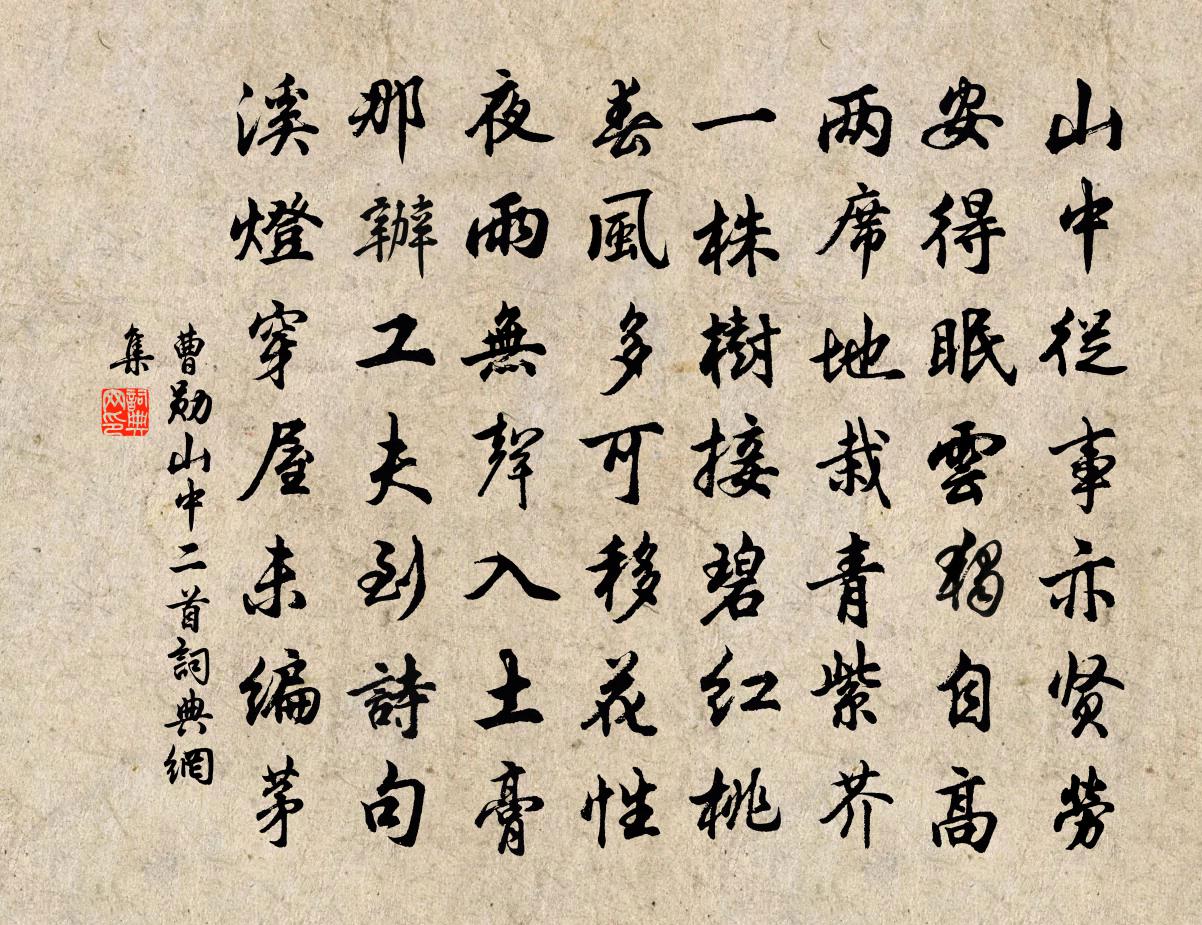 山中從事亦贤勞
安得眠雲獨自高
两席地栽青紫芥
一株樹接碧紅桃
春風多可移花性
夜雨無聲入土膏
那辦工夫到詩句
溪燈穿屋未編茅
曹勛山中二首詞典網
集
詞典网印